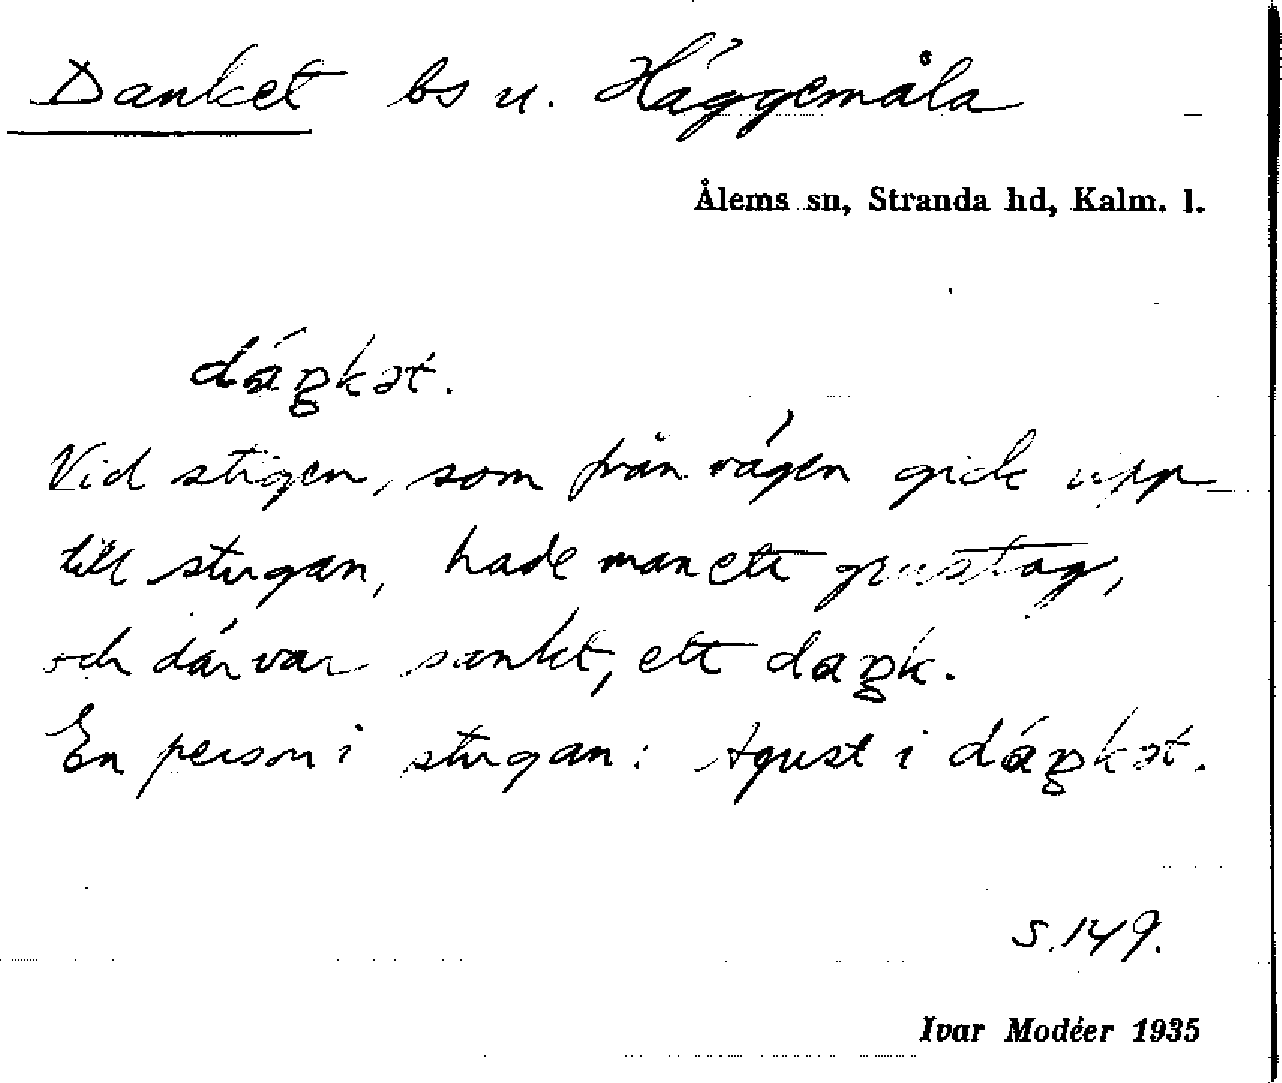 Danket bs u. Häggemåla
Ålems sn, Stranda hd, Kalm. l.
dáŋkət.
Vid stigen, som från vägen gick upp
till stugan, hade man ett grustag,
och där var sankt, ett daŋk.
En person i stugan: Agust i dáŋkət.
s. 149.
Ivar Modéer 1935